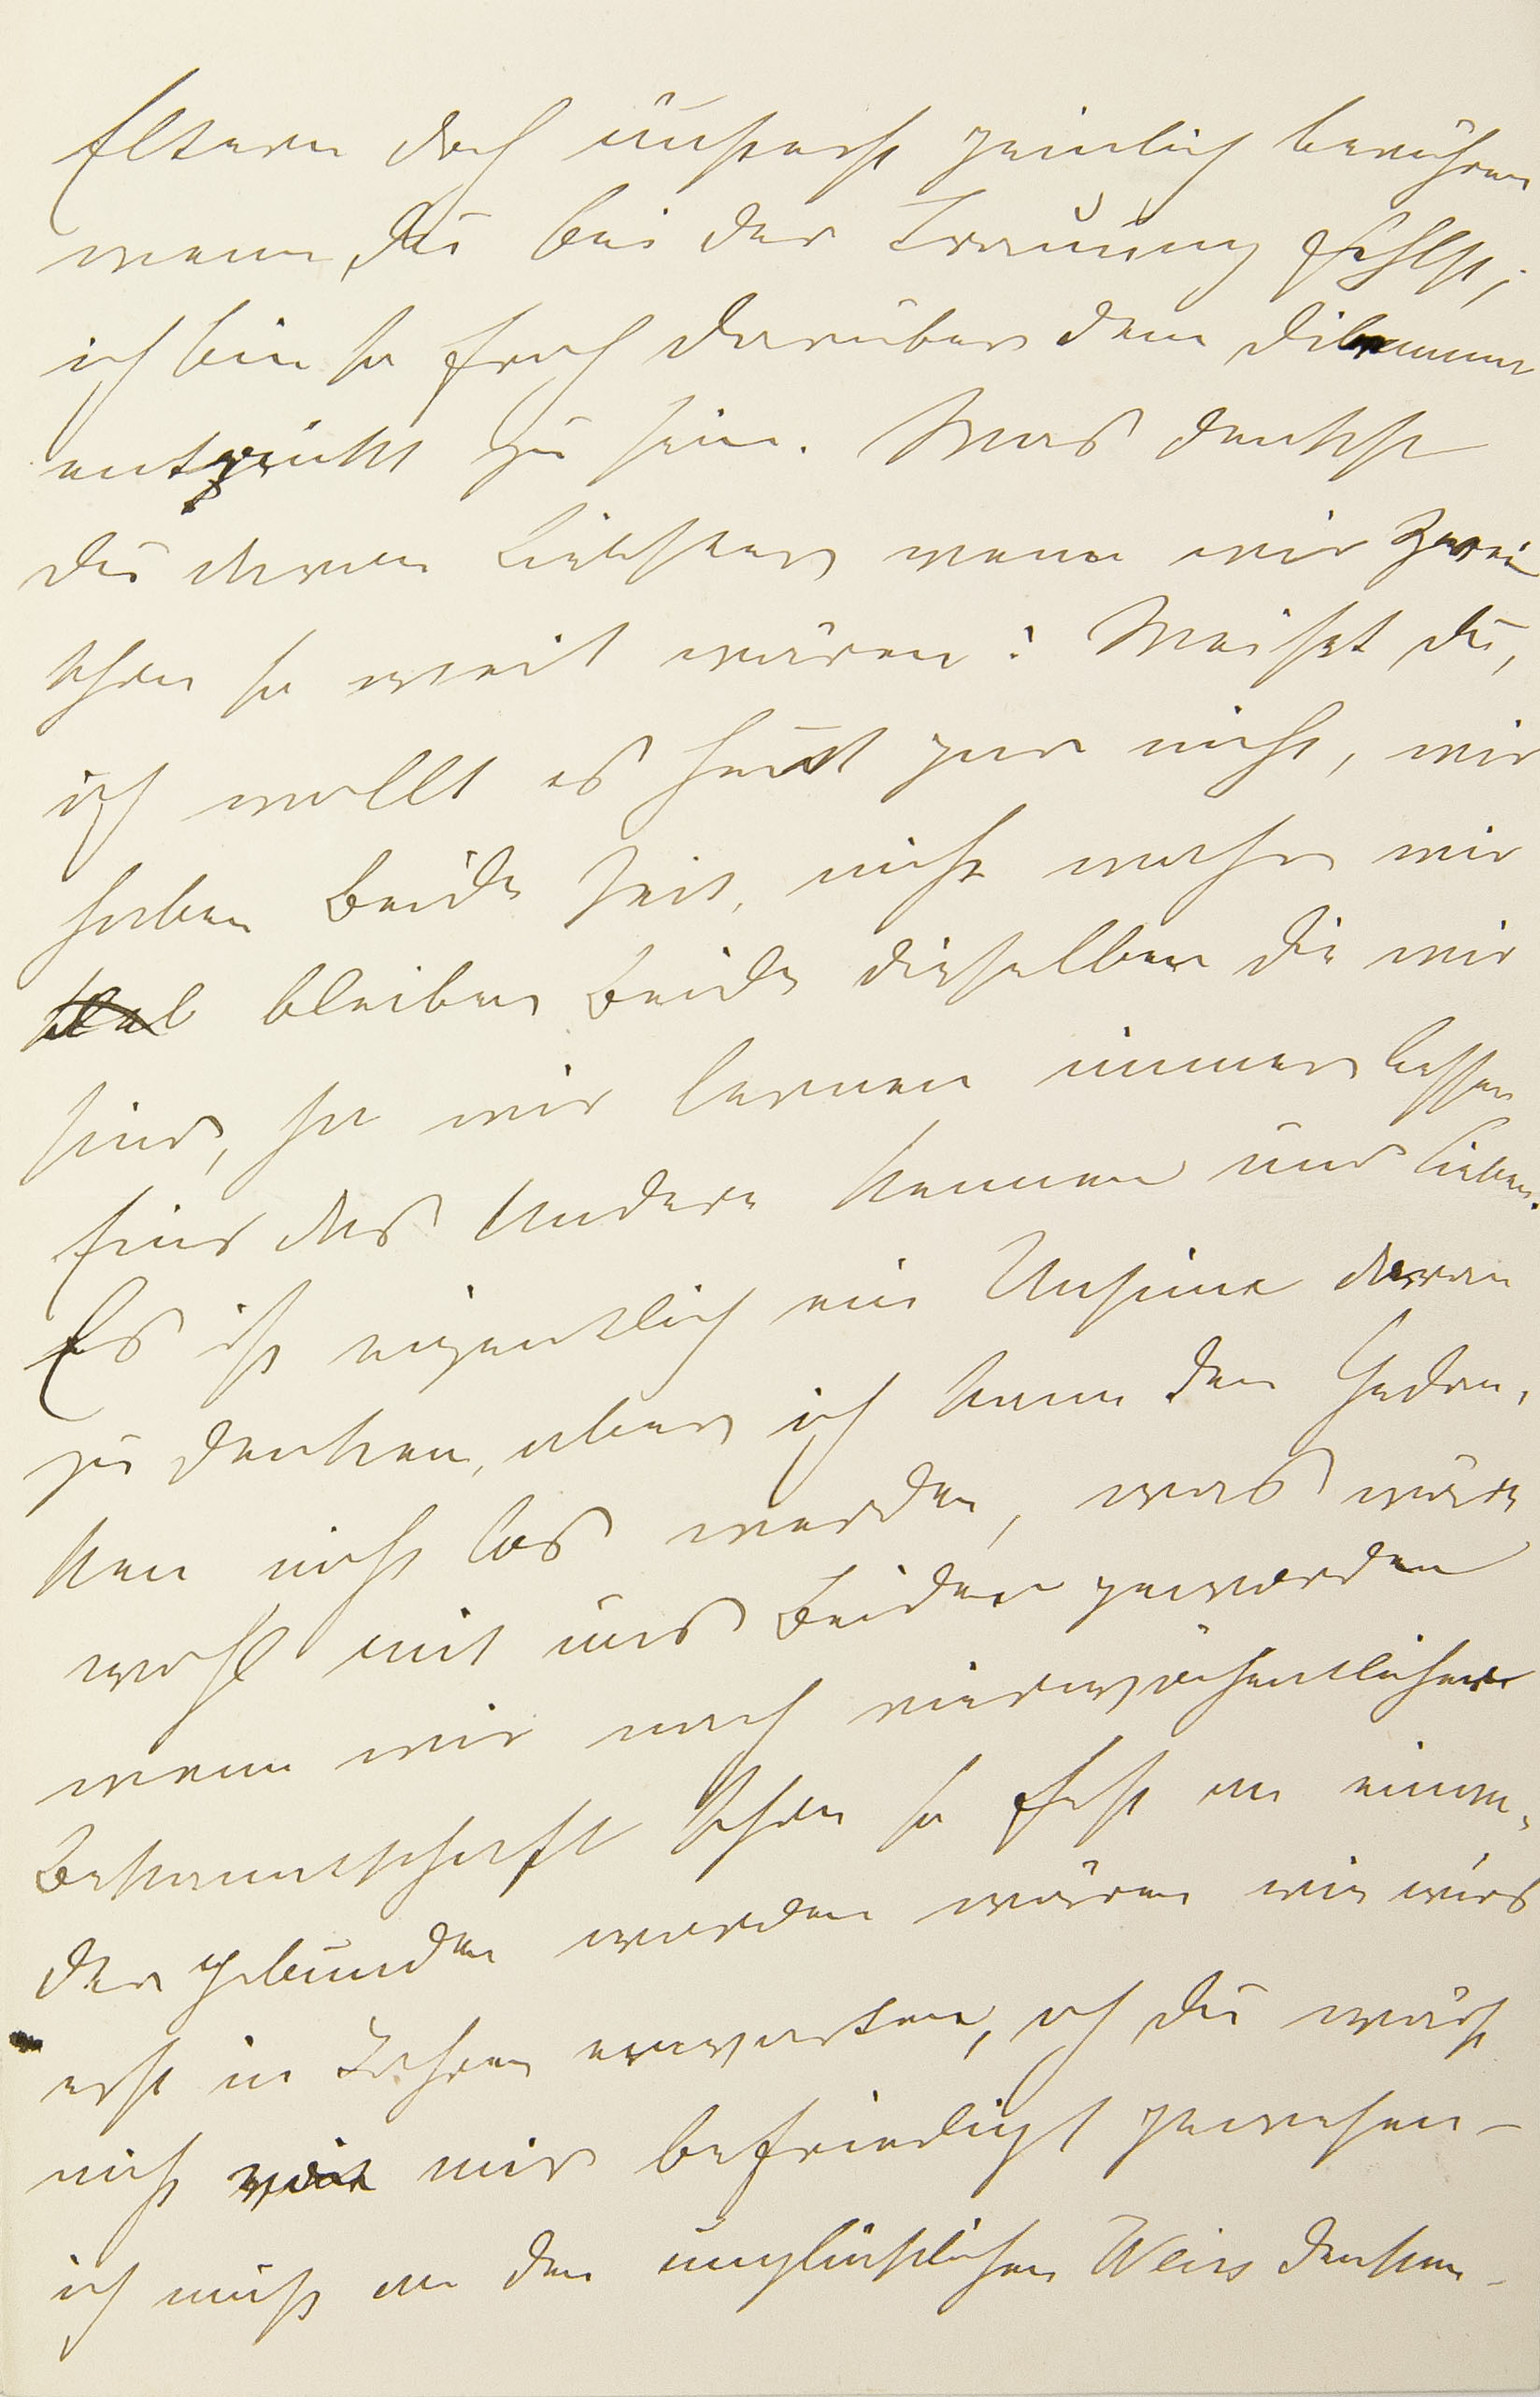 Eltern doch äußerst peinlich berühren
wenn Du bei der Trauung fehlst;
ich bin so froh darüber dem Dilemma
entrückt zu sein. Was denkst
Du davon Liebster, wenn wir zwei
schon so weit wären? Weißt Du,
ich wollt es heut gar nicht, wir
haben beide Zeit, nicht wahr wir
bleiben beide dieselben die wir
sind, ja wir lernen immer besser
Eins das Andere kennen und lieben.
Es ist eigentlich ein Unsinn daran
zu denken, aber ich kann den Gedan,
ken nicht los werden, was wäre
wohl mit uns beiden geworden
wenn wir nach vierwöchentlicher
Bekanntschaft schon so fest an einan,
der gebunden worden wären wie wirs
erst in Jahren erwarten, ach Du wärst
nicht mit mir befriedigt gewesen –
ich muß an den unglücklichen Weiss denken –